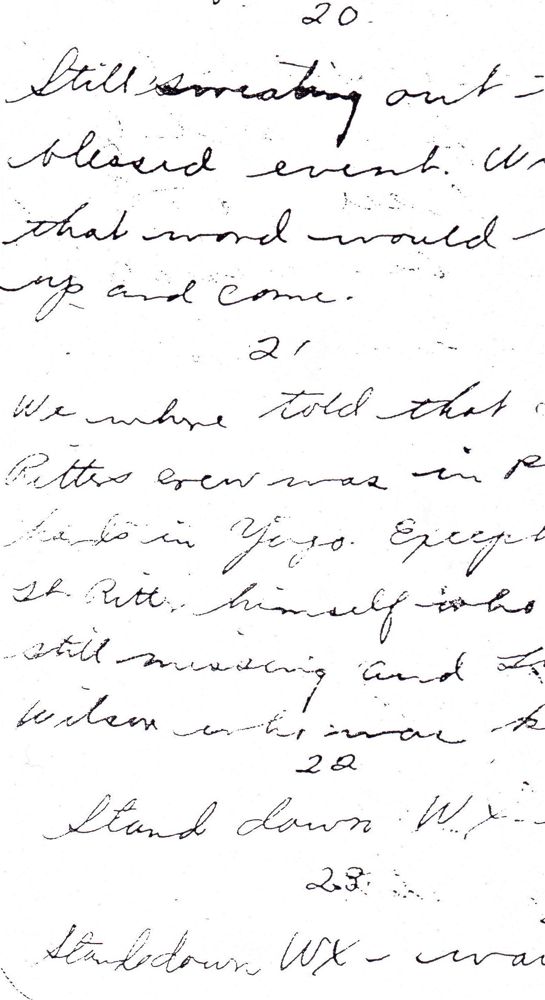 20.
Still sweating out -
blessed event.
that word would
up and come.
21
We where told that
Ritters crew was in
in Yugo. Except
Lt. Ritter himself who
still missing and
Wilson who was
22
Stand down WX -
23.
Standdown WX -